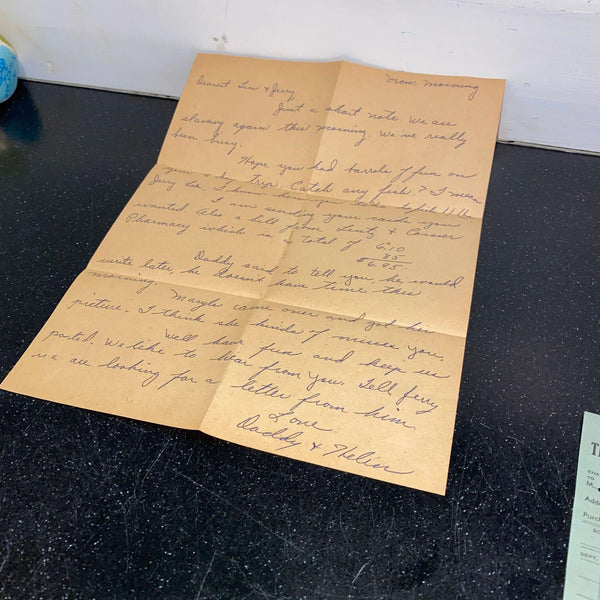 Mon. Morning
Dearest Lin & Jerry
Just a short note. We are
slaving again this morning. We've really
been busy.
Hope you had barrels of fun on
your Trip. Catch any fish? I mean
Jerry Lee. I know
I am sending your cards you
wanted. Also a bill from Lentz &
Pharmacy which is a total of 6.10
.85
$6.95.
Daddy said to tell you, he would
write later, he doesn't have time this
morning.
came over and got her
picture. I think she kinda of misses you.
Well have fun and keep us
posted. We like to hear from you. Tell Jerry
we are looking for a letter from him.
Love
Daddy & Helen
TH
CHA
TO
M
Addr
Purch
DEPT.